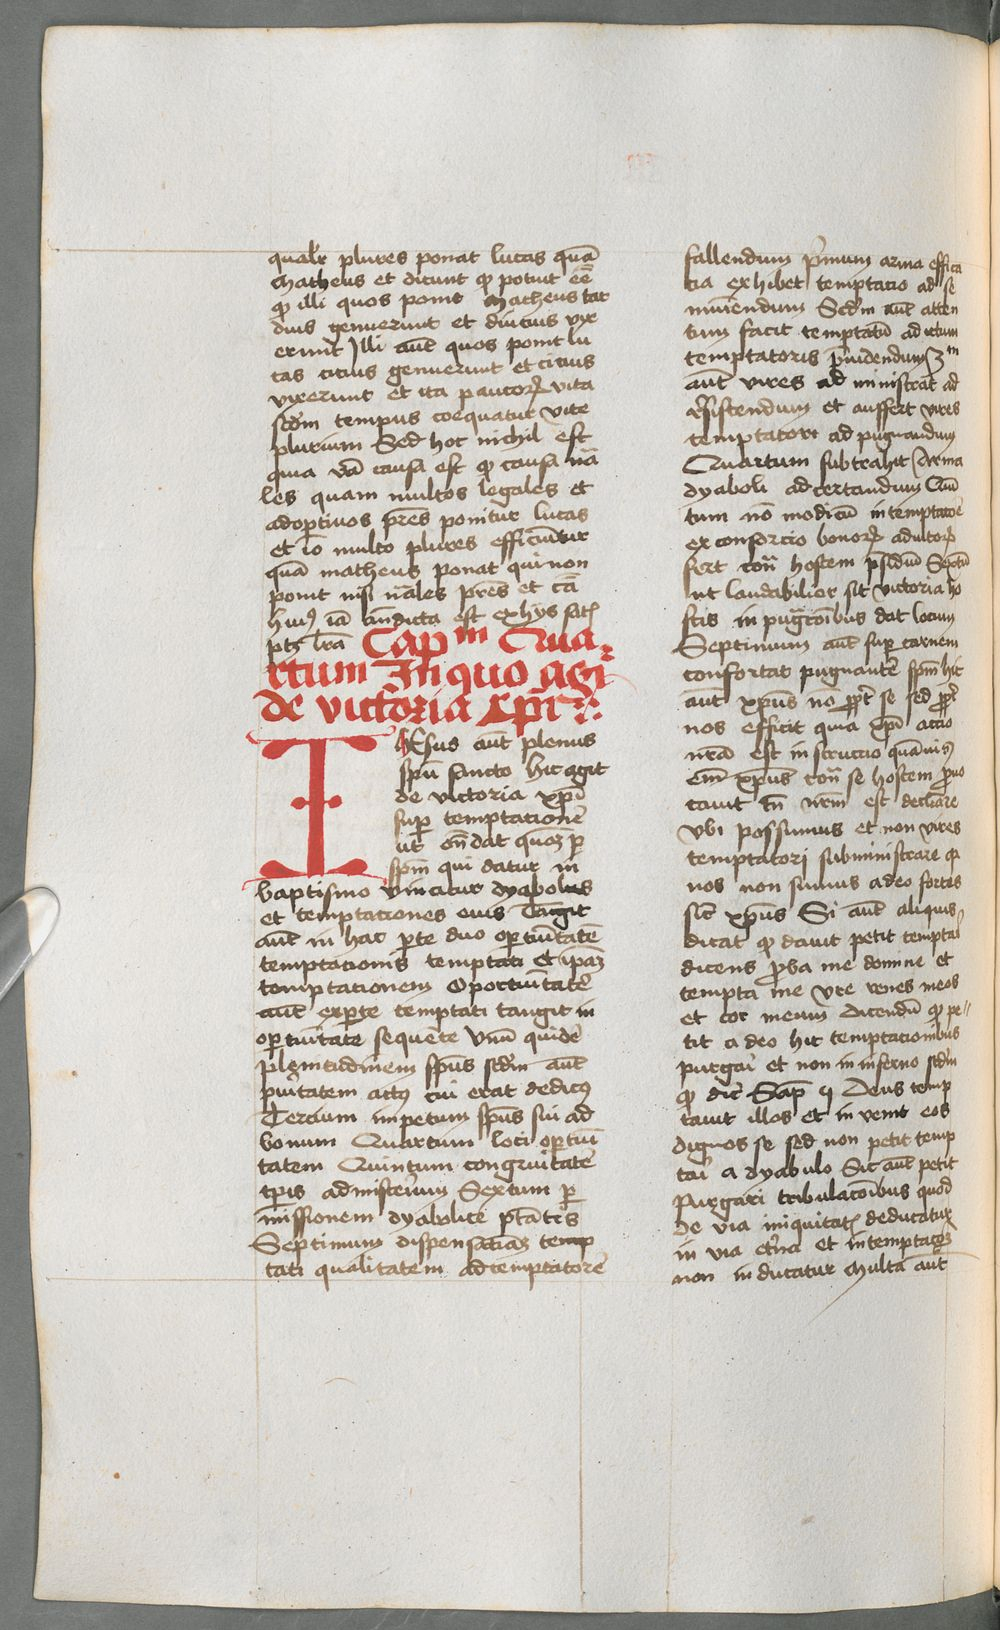 qualr plures ponat lucas quā
Matheus et dicunt ꝙ potuit eē
ꝙ illi quos ponit Matheus tar
dius genuerunt et diucius vix
erunt Illi aut̄ quos ponit lu
cas cicius genuerunt et cicius
vixerunt et ita paucoꝝ vita
scd̄m tempus coequatur vite
plurium Sed hoc nichil est
quia vā causa est ꝙ causa nā
les quam multos legales et
adoptiuos pr̄es ponitur lucas
et iō multo plures efficiūtur
quā matheus ponat qui non
ponit nisi nāles pr̄es et cā
huiꝰ iā dicta est ex hys satꝭ
ptꝫ lr̄a Capm Qua-
rtum In quo agit
de victoria Cpi
IHesus aut̄ plenus
spū sancto Hic agit
de victoria xp̄i
sup̱ temptationē
ut on̄dat quoꝫ p̱
spm̄ qui datur in
baptismo vincitur dyabolus
et temptationes euis Tangit
aut̄ in hac p̱te duo oportūitatē
temptacionis temptati et ipaꝫ
temptationem Oportūitatē
aut̄ ex p̱te temptati tangit in
oportūitate sequente Vnū quidē
plenitudinem spūs scd̄m aut̄
puritatem actꝰ cui erat deditꝰ
Tercium impetum spūs sui ad
bonum Quartum loci oportūi
tatem Quintum congruitatē
tp̄is ad misterium Sextum p̱
missionem dyabolice ptāt̄is
Septimum dispensatiuā temp
tati qualitatem ad temptatorē
fallendum Primum arma effica
cia exhibet temptacio ad se
muniendum Scd̄m aut̄ atten
tum facit temptatū ad ictum
temptatoris p̄uidendum 3m
aut̄ vires ad ministrat ad
resistendum et auffert vires
temptatori ad pugnandum
Quartum subtrahit arma
dyaboli ad certandum Quī
tum nō modicū in temptatōe
ex consorcio bonoꝝ adiutoꝝ
fert cont̄ hostem p̄sidiū Sextū
ut laudabilior sit victoria ho
stis in pugcōibus dat locum
Septimum aut̄ sup̱ carnem
confortat pugnantē spm̄ hic
aut̄ xp̄us nō ppt̄ se sed ppt̄
nos efficit quia xp̄i actio
nr̄a est instructio quāuis
em̄ xp̄us cont̄ se hostem prouo
cauit tn̄ nr̄m est declīare
vbi possumus et non vires
temptatori subministrare ꝙ
nos non sumus adeo fortes
sic̄ xp̄us Si aut̄ aliquis
dicat ꝙ dauit petit tempta'
dicens proba me domine et
tempta me vre renes meos
et cor meum dicendū ꝙ pe-
tit a deo hic temptacionibus
purgari et non in inferno scd̄m
ꝙ dic̄ Sap̄ 3 Deus temp
tauit illos et inuenit eos
dignos se sed non petit temp
tari a dyabulo Sic aut̄ petit
purgari tribulacōibus quod
de via iniquitatꝭ deducatur
in via et̄na et in temptacōeꝫ
non inducatur Multa aut̄